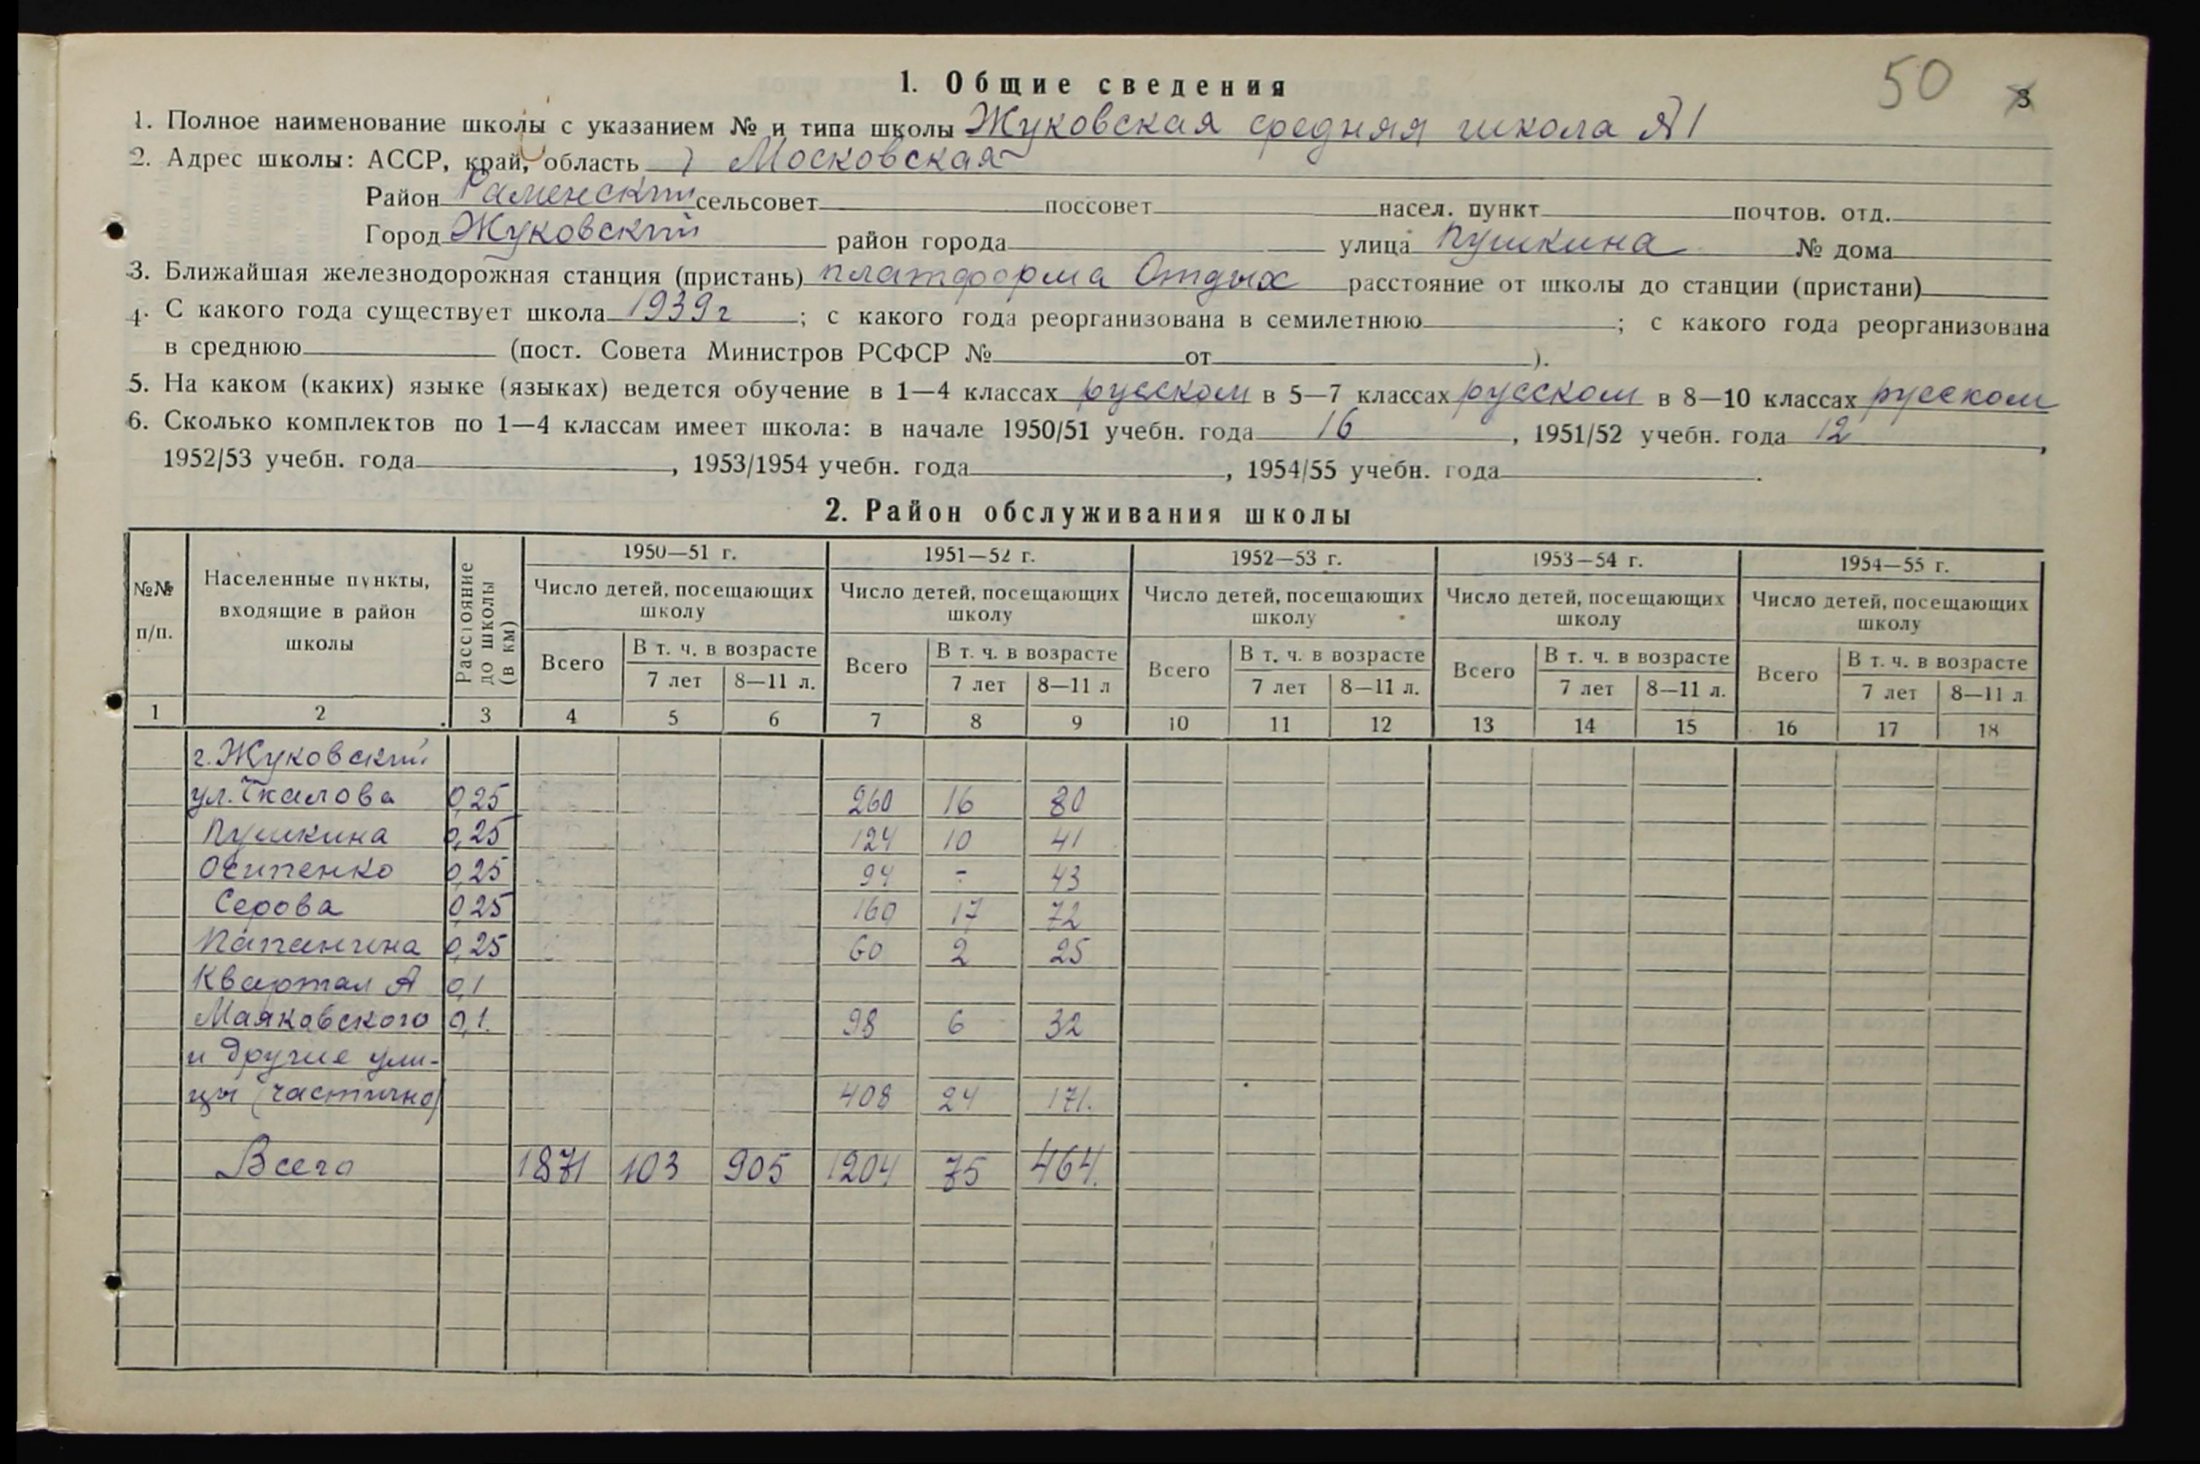 50 3
1. Общие сведения
1. Полное наименование школы с указанием № и типа школы Жуковская средняя школа №1
2. Адрес школы: АССР, край, область Московская
Район Раменский сельсовет поссовет насел. пункт почтов. отд.
Город Жуковский район города улица Пушкина № дома
3. Ближайшая железнодорожная станция (пристань) платформа Отдых расстояние от школы до станции (пристани)
4. С какого года существует школа 1939 г ; с какого года реорганизована в семилетнюю ; с какого года реорганизована
в среднюю (пост. Совета Министров РСФСР № от ).
5. На каком (каких) языке (языках) ведется обучение в 1—4 классах русском в 5—7 классах русском в 8—10 классах русском
6. Сколько комплектов по 1—4 классам имеет школа: в начале 1950/51 учебн. года 16 , 1951/52 учебн. года 12 ,
1952/53 учебн. года , 1953/1954 учебн. года , 1954/55 учебн. года .
2. Район обслуживания школы
№№ п/п. Населенные пункты, входящие в район школы Расстояние до школы (в км) 1950—51 г. 1951—52 г. 1952—53 г. 1953—54 г. 1954—55 г.
Число детей, посещающих школу Число детей, посещающих школу Число детей, посещающих школу Число детей, посещающих школу Число детей, посещающих школу
Всего В т. ч. в возрасте Всего В т. ч. в возрасте Всего В т. ч. в возрасте Всего В т. ч. в возрасте Всего В т. ч. в возрасте
7 лет 8—11 л. 7 лет 8—11 л 7 лет 8—11 л. 7 лет 8—11 л. 7 лет 8—11 л
1 2 3 4 5 6 7 8 9 10 11 12 13 14 15 16 17 18
г. Жуковский
ул. Чкалова 0,25 260 16 80
Пушкина 0,25 124 10 41
Осипенко 0,25 94 - 43
Серова 0,25 160 17 72
Папанина 0,25 60 2 25
Квартал А 0,1
Маяковского 0,1. 98 6 32
и другие ули-
цы (частично) 408 24 171.
Всего 1871 103 905 1204 75 464.